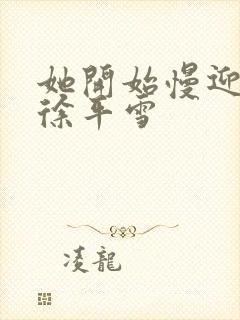 她開始慢迎
徐平雪
凌龍